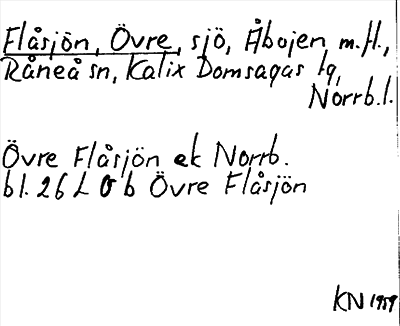 Flåsjön, Övre, sjö, Åbojen m.fl.,
Råneå sn, Kalix Domsagas tg,
Norrb.l.
Övre Flåsjön ek Norrb.
bl. 26 L 0 b Övre Flåsjön
KN 1959